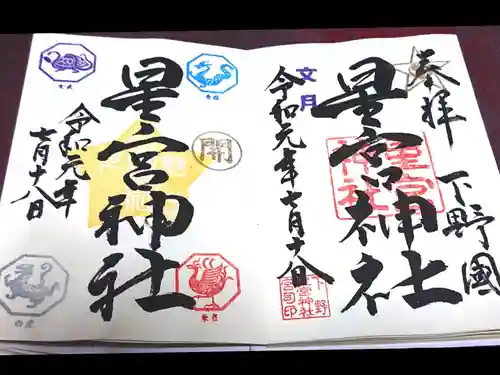 奉拝
下野國
星宮神社
星宮神社
文月
令和元年七月十八日
下野
星宮神社
宮司印
星宮神社
開
令和元年
七月十八日
玄武
青龍
朱雀
白虎